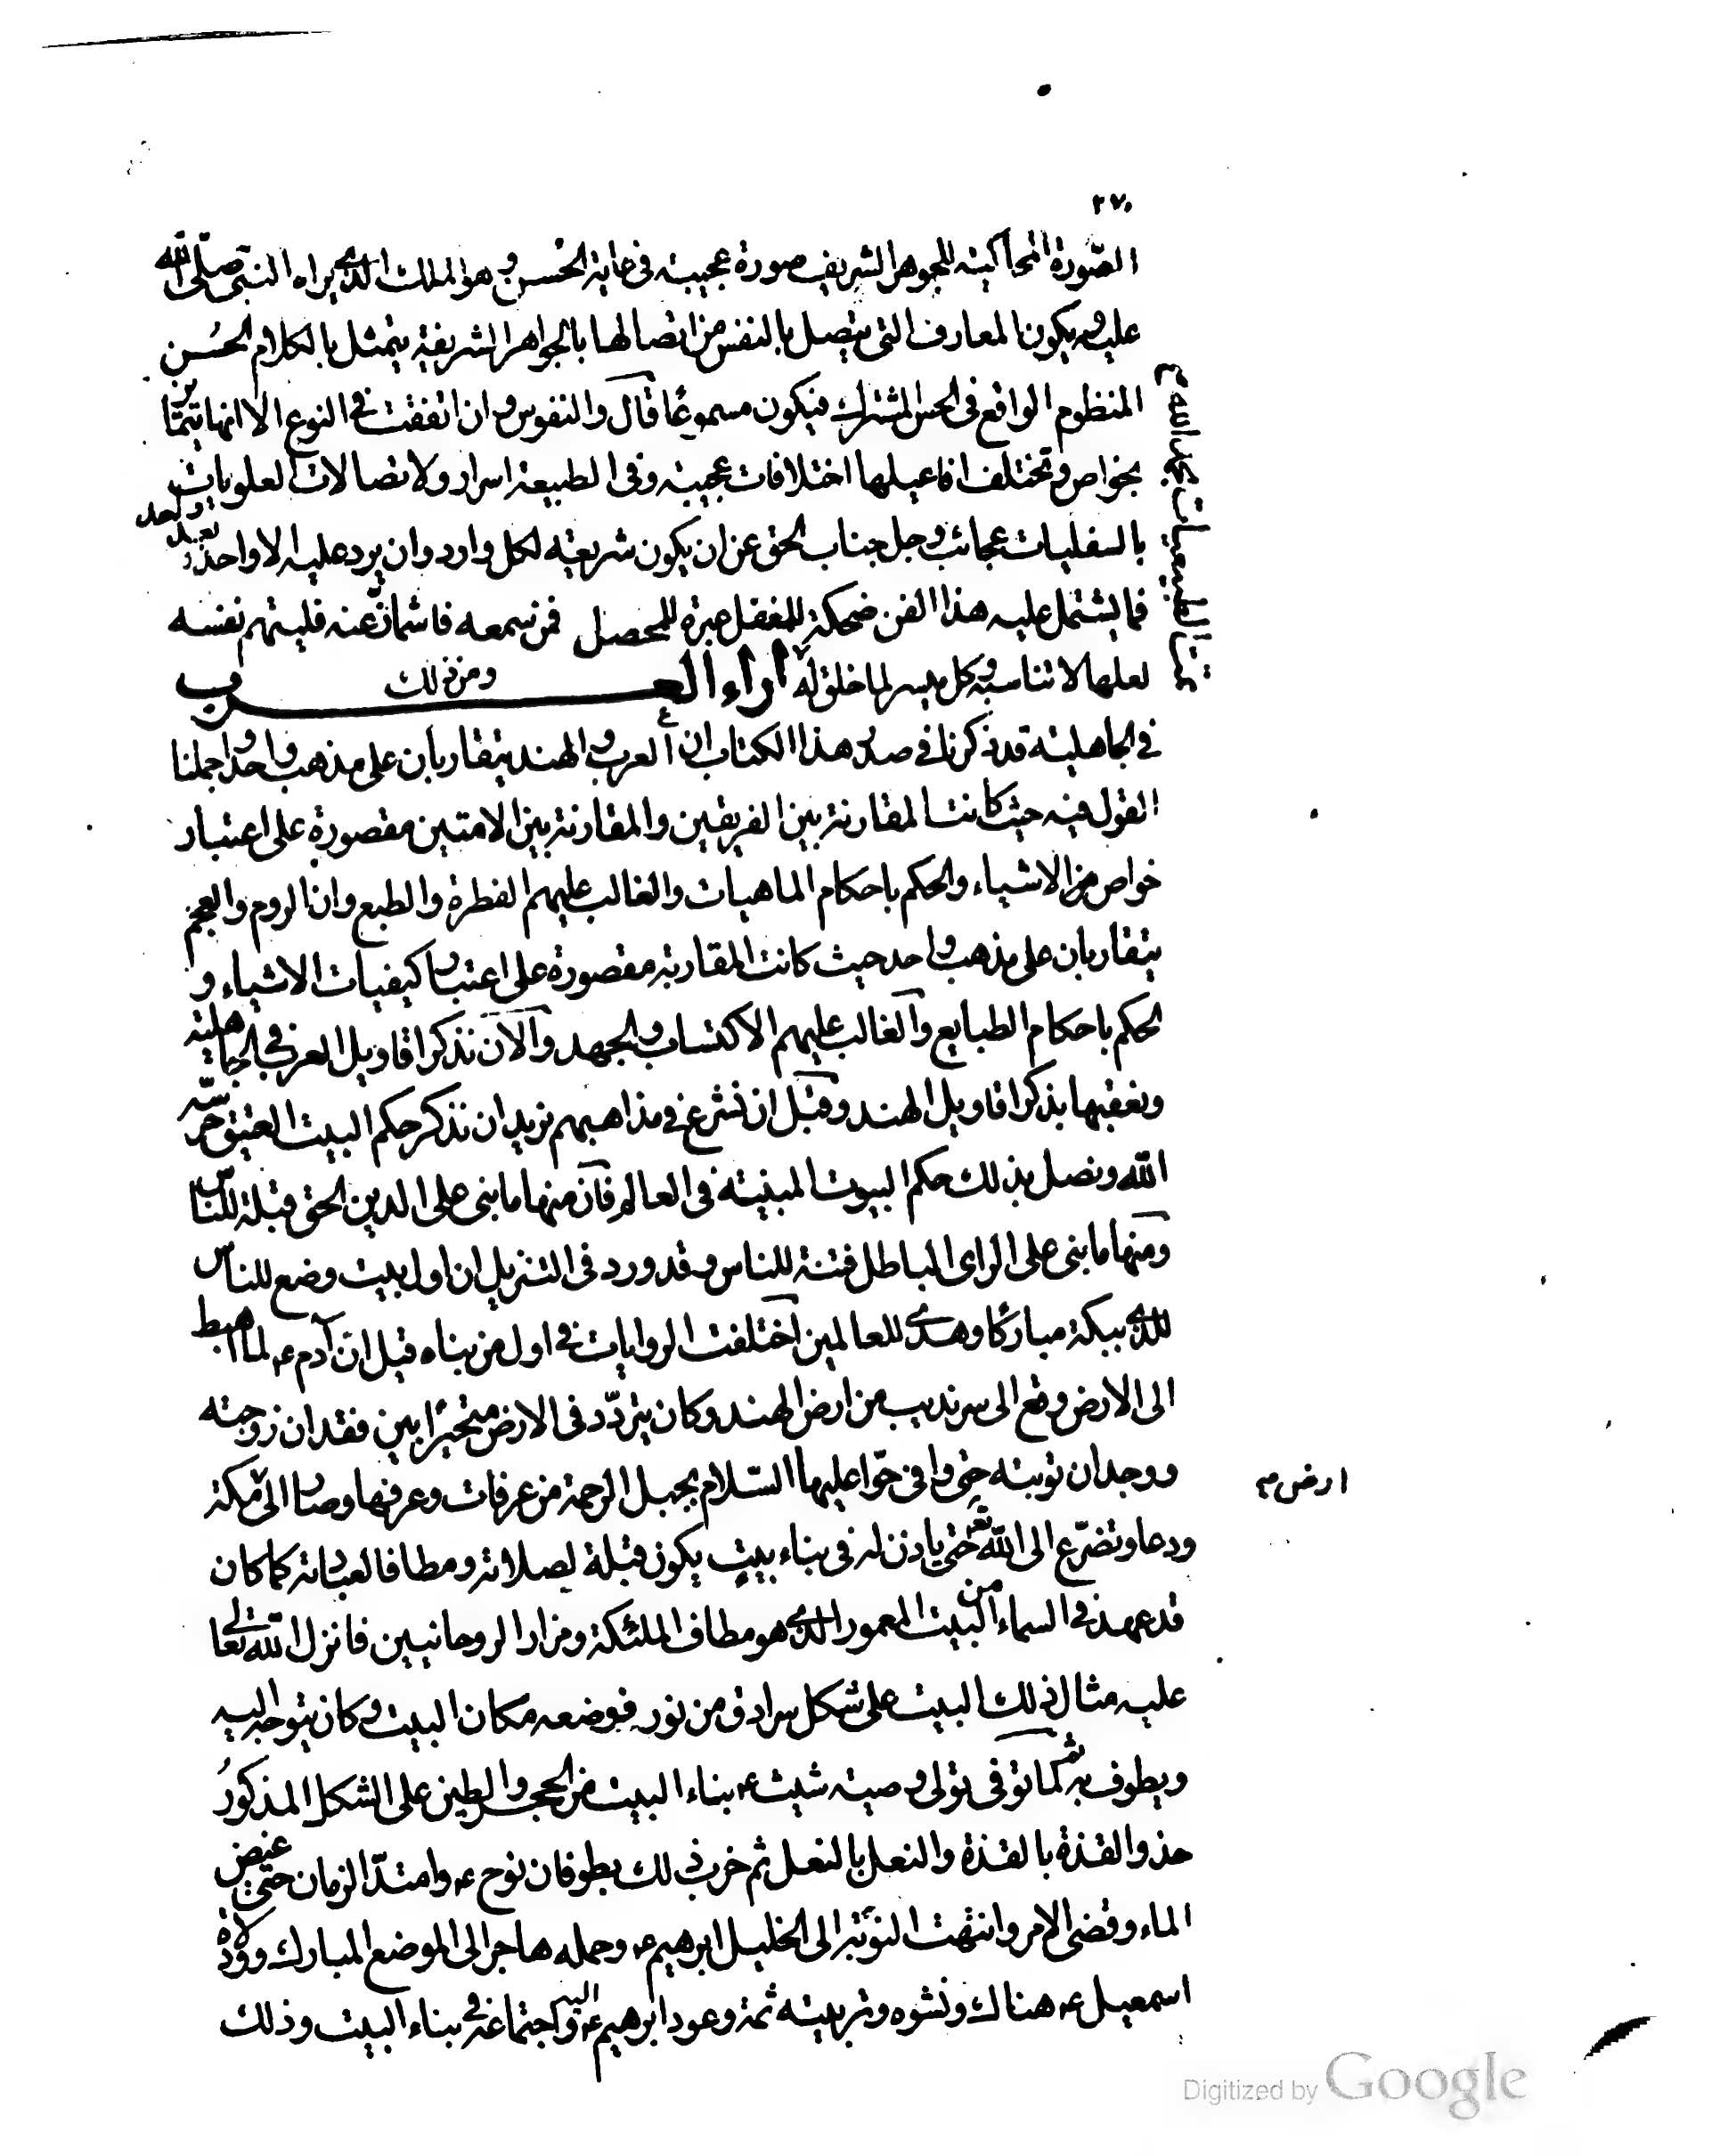 ٢٧٠
الصّورة المحاكية للجوهر الشريف صورة عجيبة فى غاية الحُسن وهو الملك الذي يراه النبى صلّى الله
عليه ويكون المعارف التى يتصل بالنفس من اتصالها بالجواهر الشريفة يتمثل بالكلام الحسُن
المنظوم الواقع فى الحس المشترك فيكون مسموعًا قال والنفوس وان اتفقت في النوع الا انها يتميّز
بخواص وتختلف افاعيلها اختلافات عجيبة وفى الطبيعة اسرار ولاتصالات العلويات
بالسفليات عجائب وجل جناب الحق عن ان يكون شريعة لكل وارد وان يرد عليه الا واحد بعد واحد
فما يشتمل عليه هذا الفن ضحكة للمغفل عبرة للمحصل فمن سمعه فاشمأزّ عنه فليتهم نفسه
لعلها لا تناسبه وكل ميسر لما خلق له ومن ذلك آراء العرب
تمت الطبيعيات بحمد الله
في الجاهلية قد ذكرنا في صدر هذا الكتاب ان العرب والهند يتقاربان على مذهب واحد اجملنا
القول فيه حيث كانت المقارنة بين الفريقين والمقارنة بين الامتين مقصورة على اعتبار
خواص من الاشياء والحكم باحكام الماهيات والغالب عليهم الفطرة والطبع وان الروم والعجم
يتقاربان على مذهب واحد حيث كانت المقاربة مقصورة على اعتبار كيفيات الاشياء و
الحكم باحكام الطبايع والغالب عليهم الاكتساب والجهد والآن نذكر اقاويل العرب في الجاهلية
ونعقبها بذكر اقاويل الهند وقبل ان نشرع في مذاهبهم نريد ان نذكر حكم البيت العتيق حرسه
الله ونصل بذلك حكم البيوت المبنية فى العالم فان منها ما بنى على الدين الحق قبلة للناس
ومنها ما بنى على الراى الباطل فتنة للناس وقد ورد فى التنزيل ان اول بيت وضع للناس
للذي ببكة مباركًا وهدى للعالمين اختلفت الروايات في اول من بناه قيل ان آدم ع لما اهبط
الى الارض وقع الى سرنديب من ارض الهند وكان يتردّد فى الارض متحيرًا بين فقدان زوجته
ووجدان توبته حتى وافى حوّا عليها السّلام بجبل الرحمة من عرفات وعرفها وصار الى مكة
ارض
ودعا وتضرّع الى الله تع حتى ياذن له فى بناء بيتٍ يكون قبلة لصلاته ومطافا لعبادته كما كان
قد عهد في السماء من البيت المعمور الذي هو مطاف الملئكة ومزار الروحانيين فانزل الله تعالى
عليه مثال ذلك البيت على شكل سرادق من نور فوضعه مكان البيت وكان يتوجه اليه
ويطوف به ثم لما توفى تولى وصيه شيث ع بناء البيت من الحجر والطين على الشكل المذكور
حذو القذة بالقذة والنعل بالنعل ثم خرب ذلك بطوفان نوح ع وامتدّ الزمان حتى غيض
الماء وقضى الامر وانتهت النوبة الى الخليل ابرهيم ع وحمله هاجر الى الموضع المبارك وولادة
اسمعيل ع هناك ونشوه وتربيته ثمة وعود ابرهيم ع اليه واجتماعه في بناء البيت وذلك
Digitized by Google